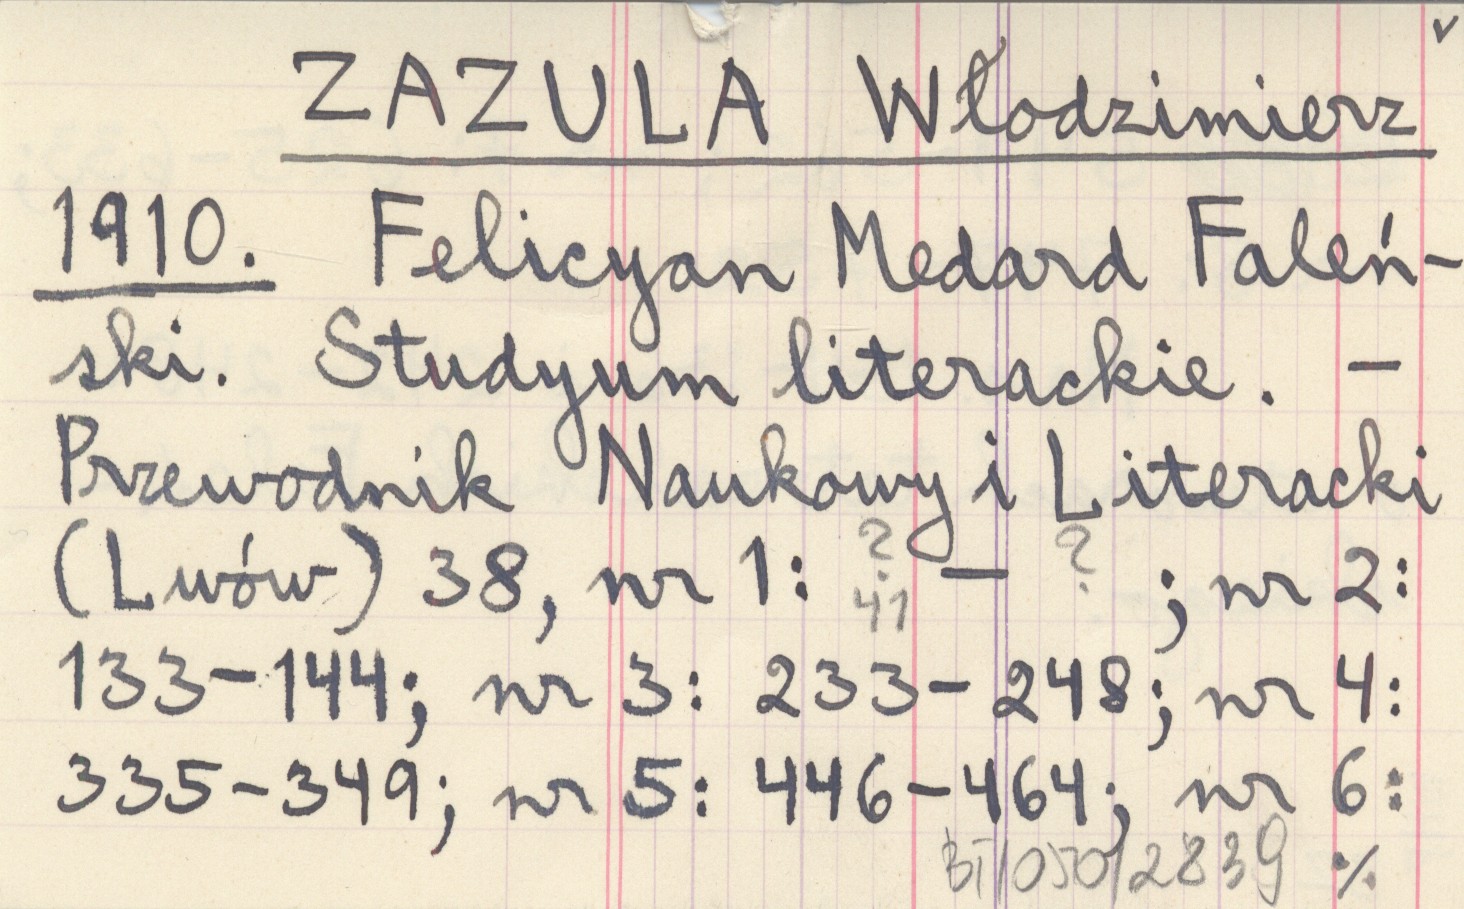 v
ZAZULA Włodzimierz
1910. Felicyan Medard Faleń-
ski. Studyum literackie. –
Przewodnik Naukowy i Literacki
(Lwów) 38, nr 1: ? – ? ; nr 2:
41
133–144; nr 3: 233–248; nr 4:
335–349; nr 5: 446–464; nr 6:
BT/050/2839 %